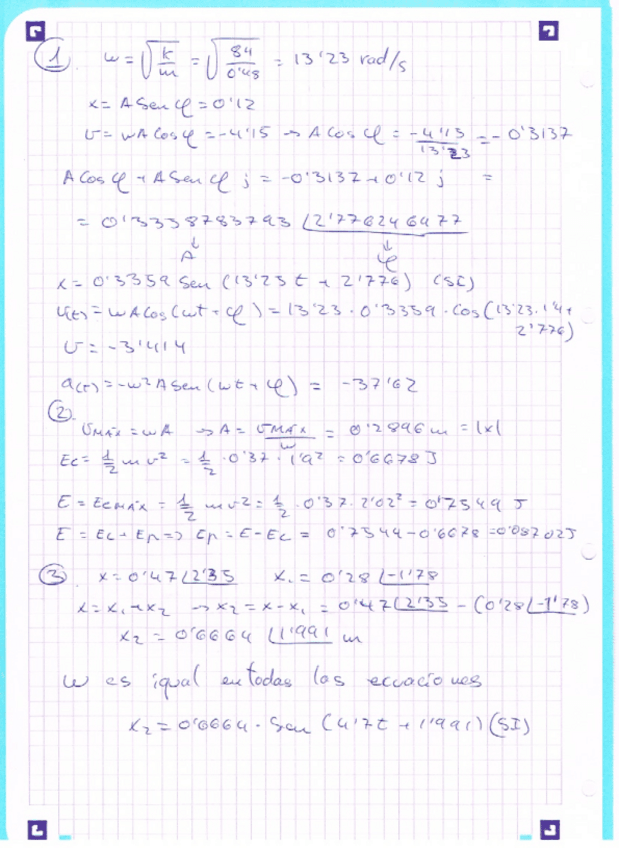 1. w = √(k/m) = √(84/0'48) = 13'23 rad/s
x = A Sen φ = 0'12
v = wA Cos φ = -4'15 → A Cos φ = -4'15/13'23 = -0'3137
A Cos φ + A Sen φ j = -0'3137 + 0'12 j =
= 0'3358783793 ∠2'776246477
↓ ↓
A φ
x = 0'3359 Sen (13'23 t + 2'776) (SI)
v(t) = wA Cos (wt + φ) = 13'23 · 0'3359 · Cos (13'23 · 1'4 +
2'776)
v = -3'414
a(t) = -w² A Sen (wt + φ) = -37'62
2.
vMÁX = wA → A = vMÁX/w = 0'2896 m = |x|
Ec = 1/2 m v² = 1/2 · 0'37 · 1'9² = 0'6678 J
E = EcMÁX = 1/2 m v² = 1/2 · 0'37 · 2'02² = 0'7549 J
E = Ec + Ep => Ep = E - Ec = 0'7544 - 0'6678 = 0'08702 J
3 x = 0'47 ∠2'35 x₁ = 0'28 ∠-1'78
x = x₁ + x₂ → x₂ = x - x₁ = 0'47 ∠2'35 - (0'28 ∠-1'78)
x₂ = 0'6664 ∠1'991 m
w es igual en todas las ecuaciones
x₂ = 0'6664 · Sen (4'7t + 1'991) (SI)